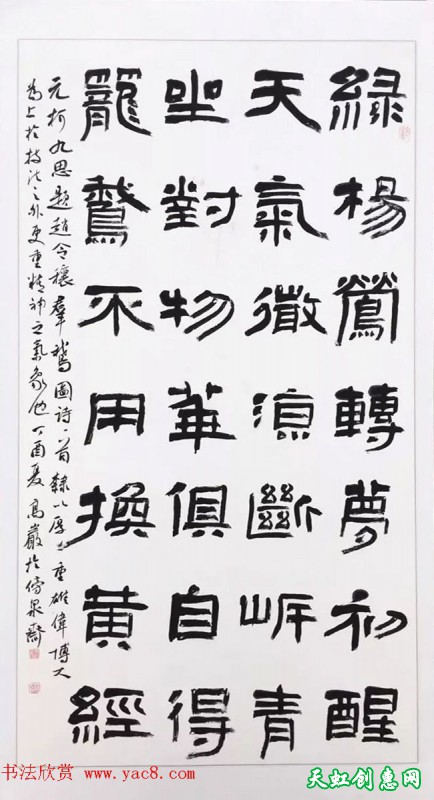 綠楊鶯轉夢初醒
天氣微涼斷岸青
坐對物華俱自得
籠鵞不用換黄經
元柯九思題趙令穰羣鵝圖詩一首隸以厚重雄偉博大
為上於技法之外更重精神之氣象也丁酉夏高巖於泉齋
书法欣赏 www.yac8.com
天虹创惠网